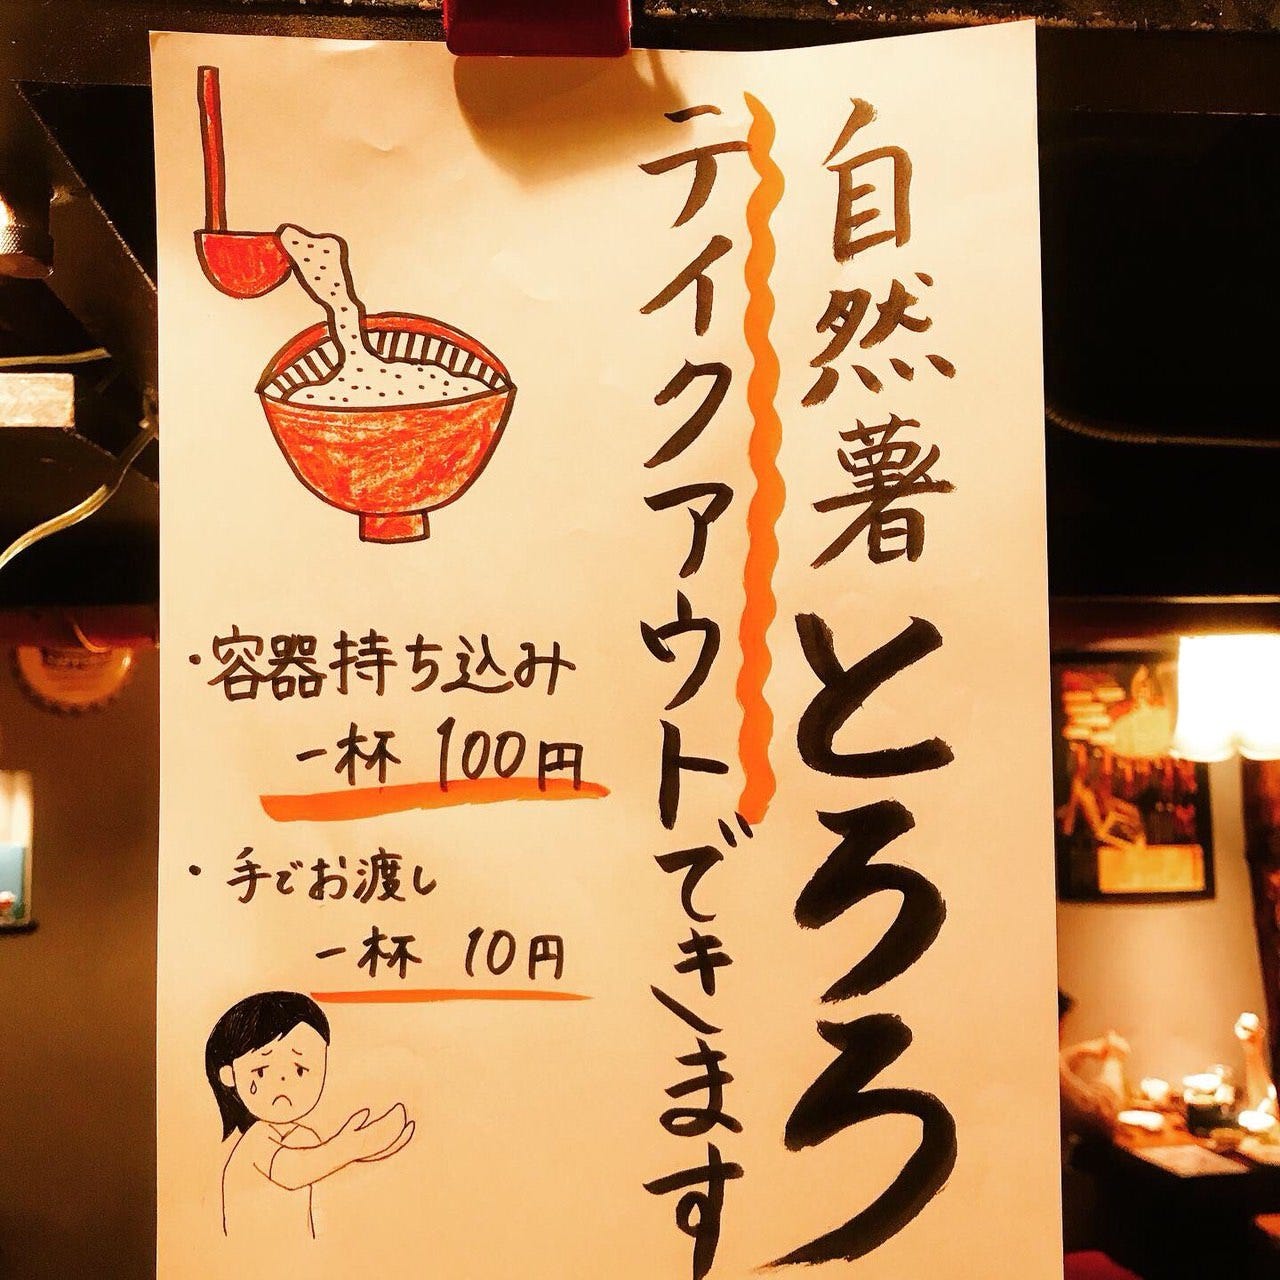 自然薯とろろ
テイクアウトできます
・容器持ち込み
一杯 100円
・手でお渡し
一杯 10円